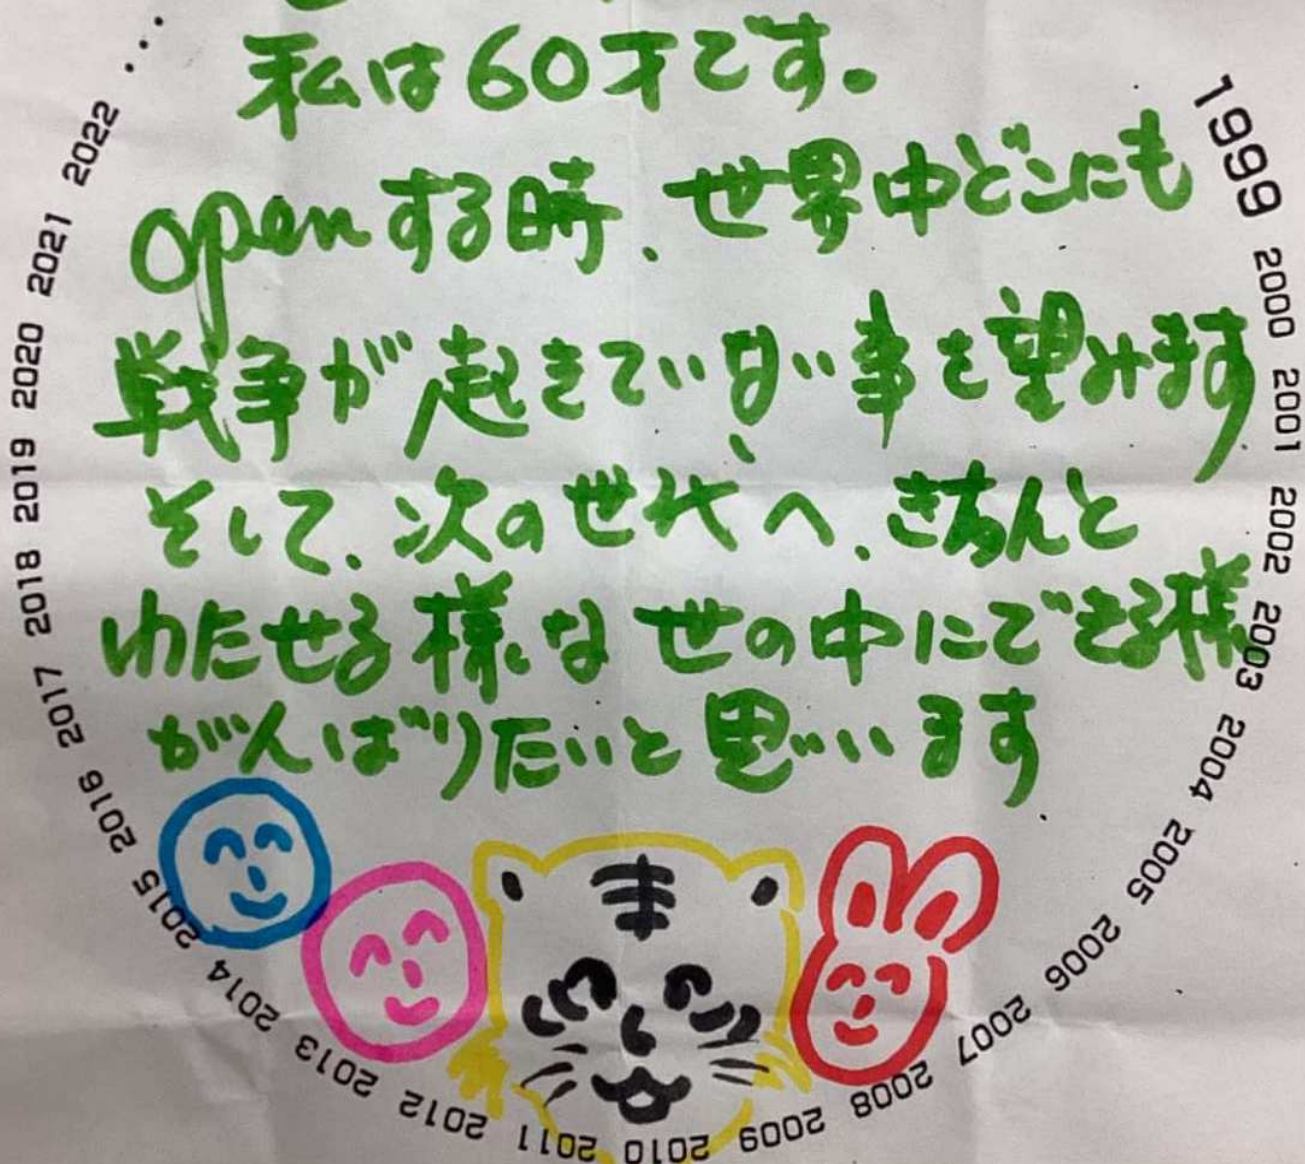 私は60才です。
openする時、世界中どこにも
戦争が起きていない事を望みます
そして、次の世代へ、きちんと
わたせる様な世の中にできる様
がんばりたいと思います
1999 2000 2001 2002 2003 2004 2005 2006 2007 2008 2009 2010 2011 2012 2013 2014 2015 2016 2017 2018 2019 2020 2021 2022 ...